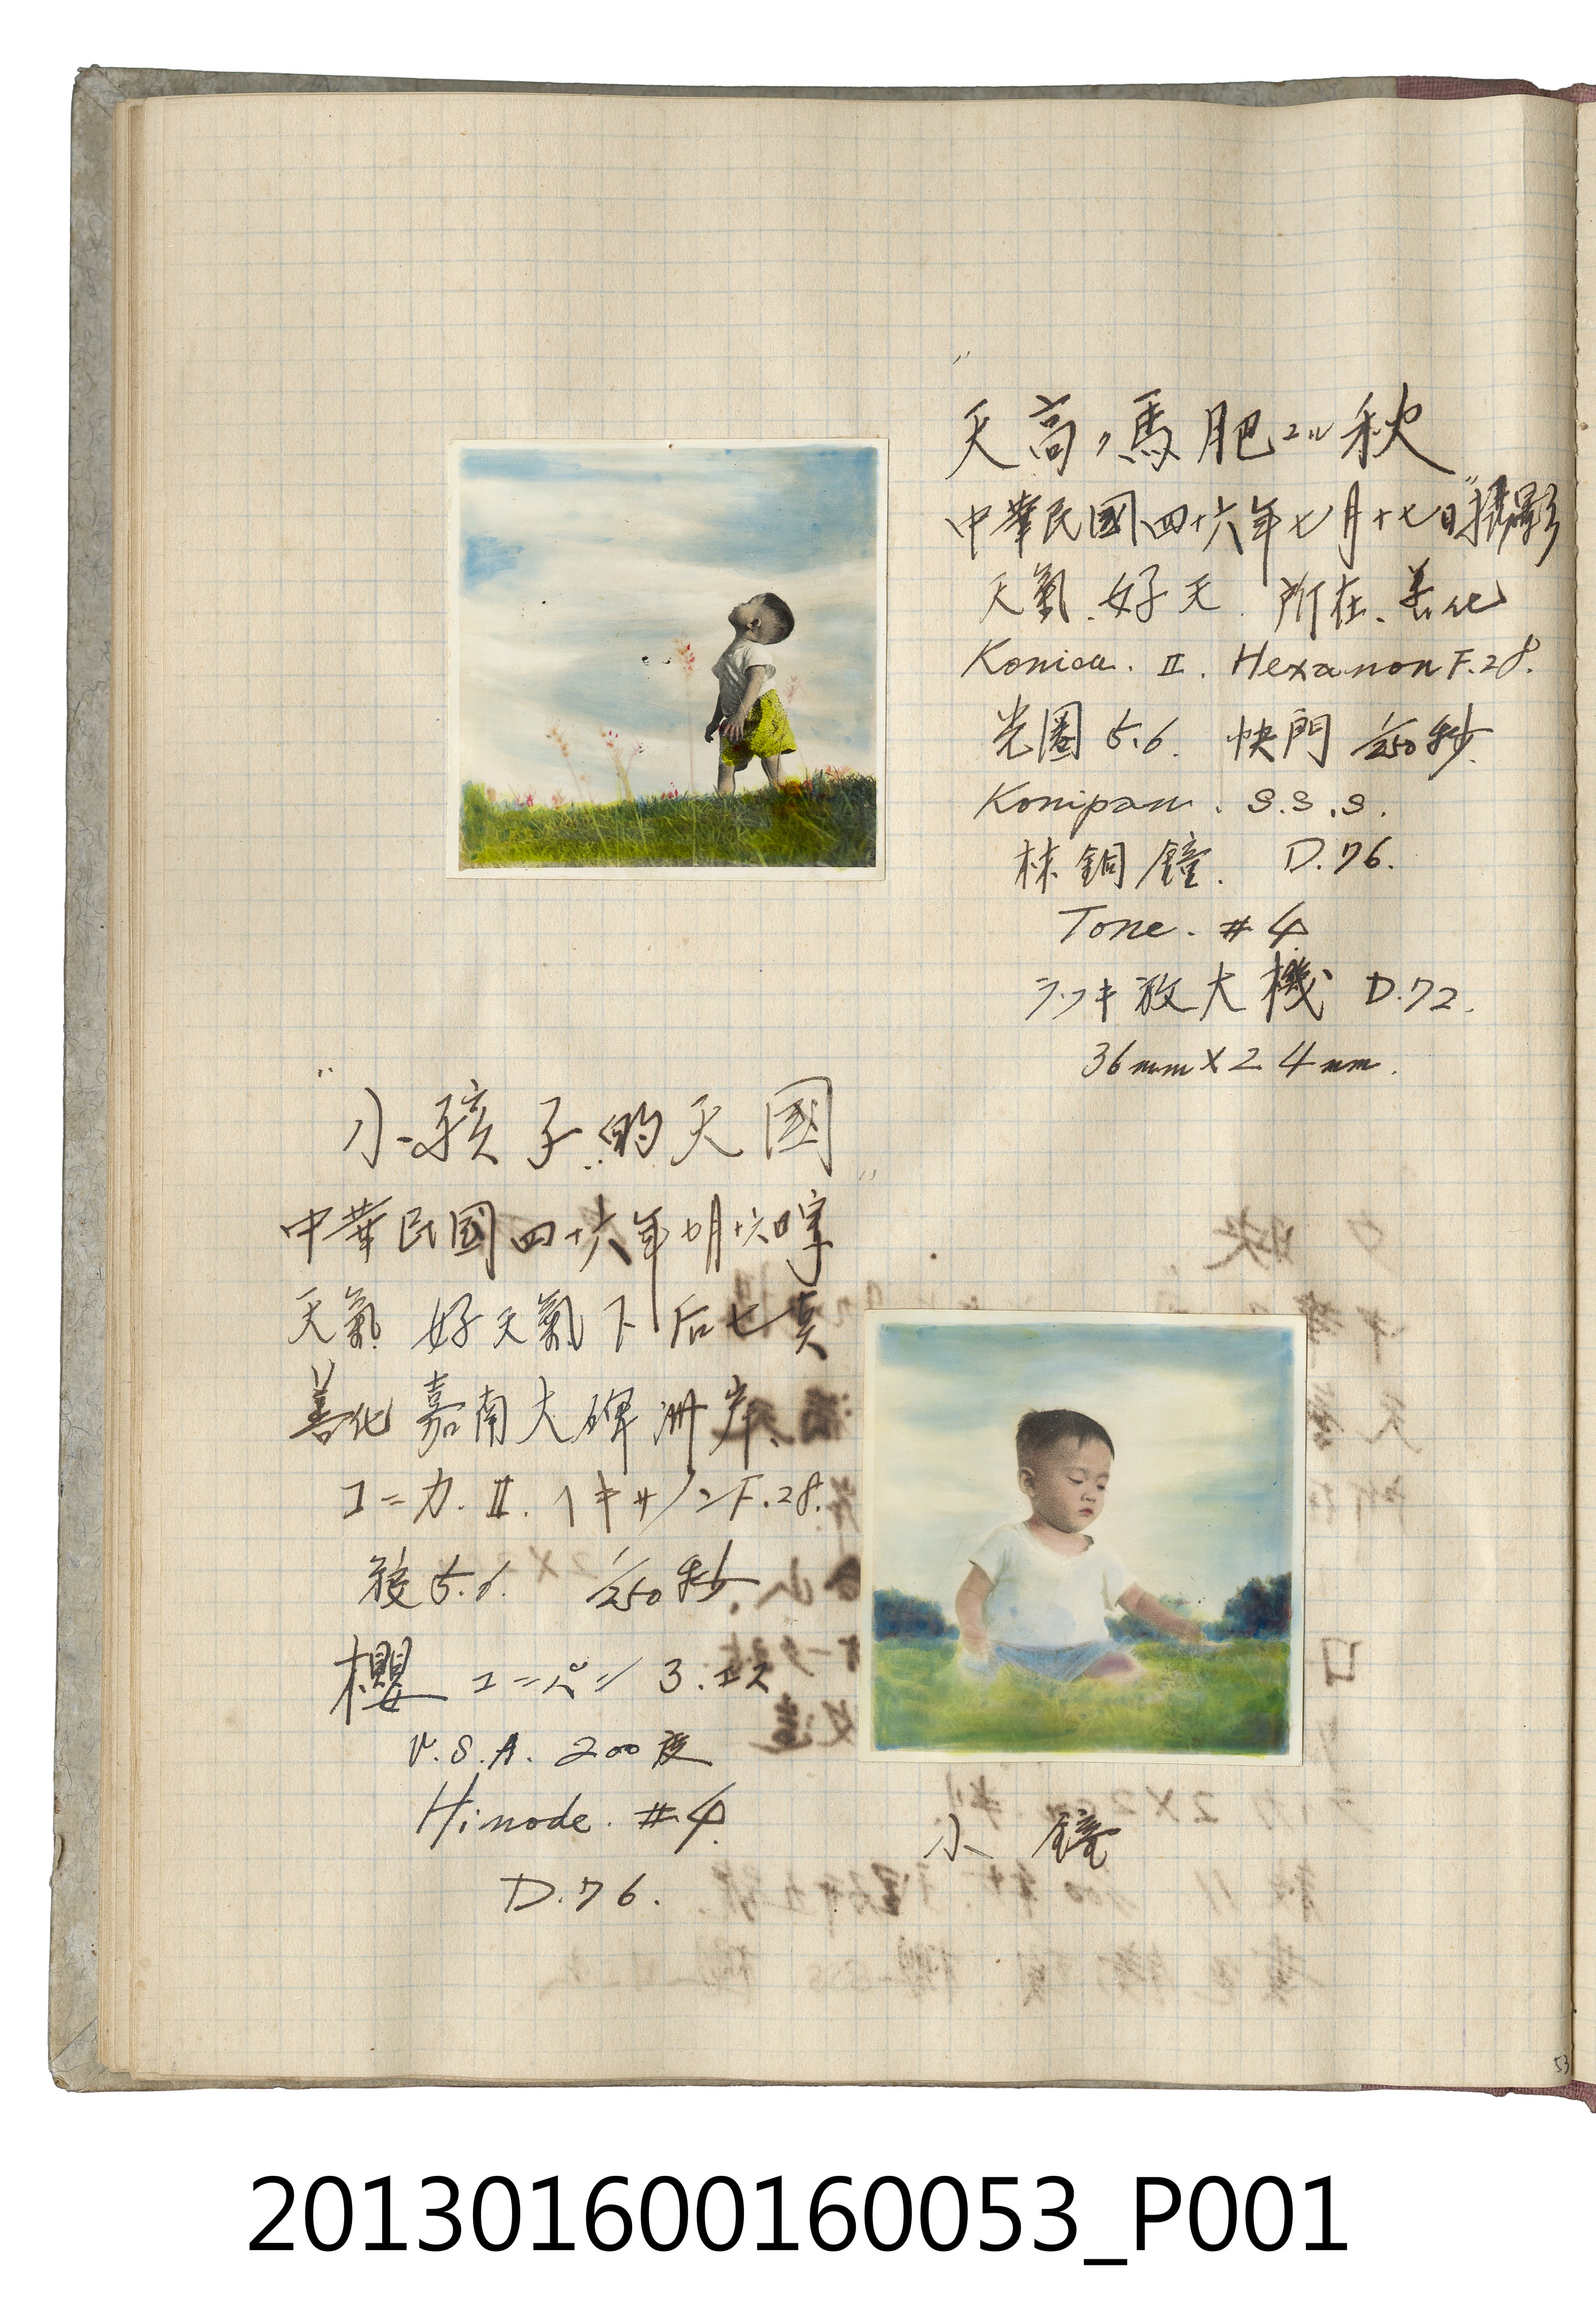 "天高,馬肥ユル秋"
中華民國四十六年七月十七日攝影
天氣.好天.所在.善化
Konica. II. Hexanon F.28.
光圈 5.6. 快門 1/250秒.
Konipan. S.S.S.
林銅鐘. D.76.
Tone. #4
ラッキ放大機 D.72.
36mm X 24mm.
"小孩子的天國"
中華民國四十六年七月十六日
天氣 好天氣下后七
善化 嘉南大碑洲岸.
コニカ.II.ヘキサノンF.28.
5.6. 1/250秒.
櫻 コニパン 3.エス
V.S.A. 200度
Hinode. #4.
D.76.
小鐘
53
201301600160053_P001